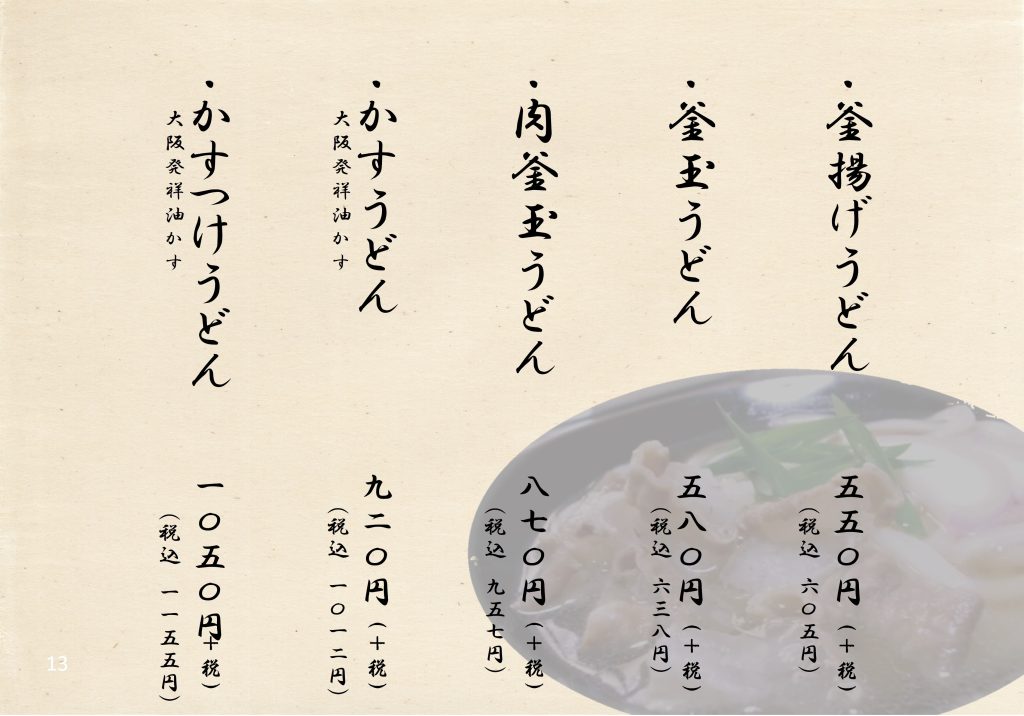 ・釜揚げうどん
五五〇円（＋税）
（税込 六〇五円）
・釜玉うどん
五八〇円（＋税）
（税込 六三八円）
・肉釜玉うどん
八七〇円（＋税）
（税込 九五七円）
・かすうどん
大阪発祥油かす
九二〇円（＋税）
（税込 一〇一二円）
・かすつけうどん
大阪発祥油かす
一〇五〇円（＋税）
（税込 一一五五円）
13